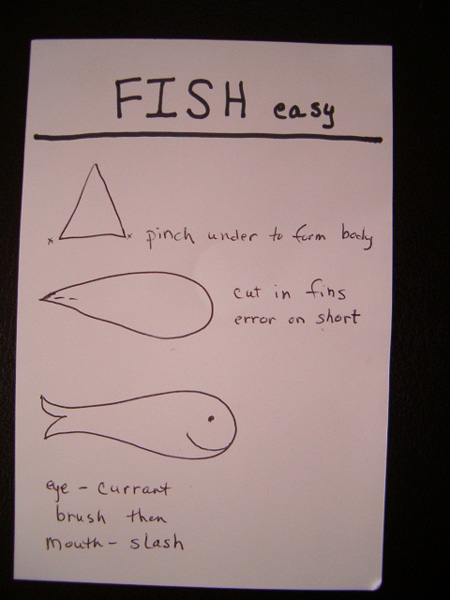 FISH easy
x x pinch under to form body
cut in fins
error on short
eye - currant
brush then
mouth - slash